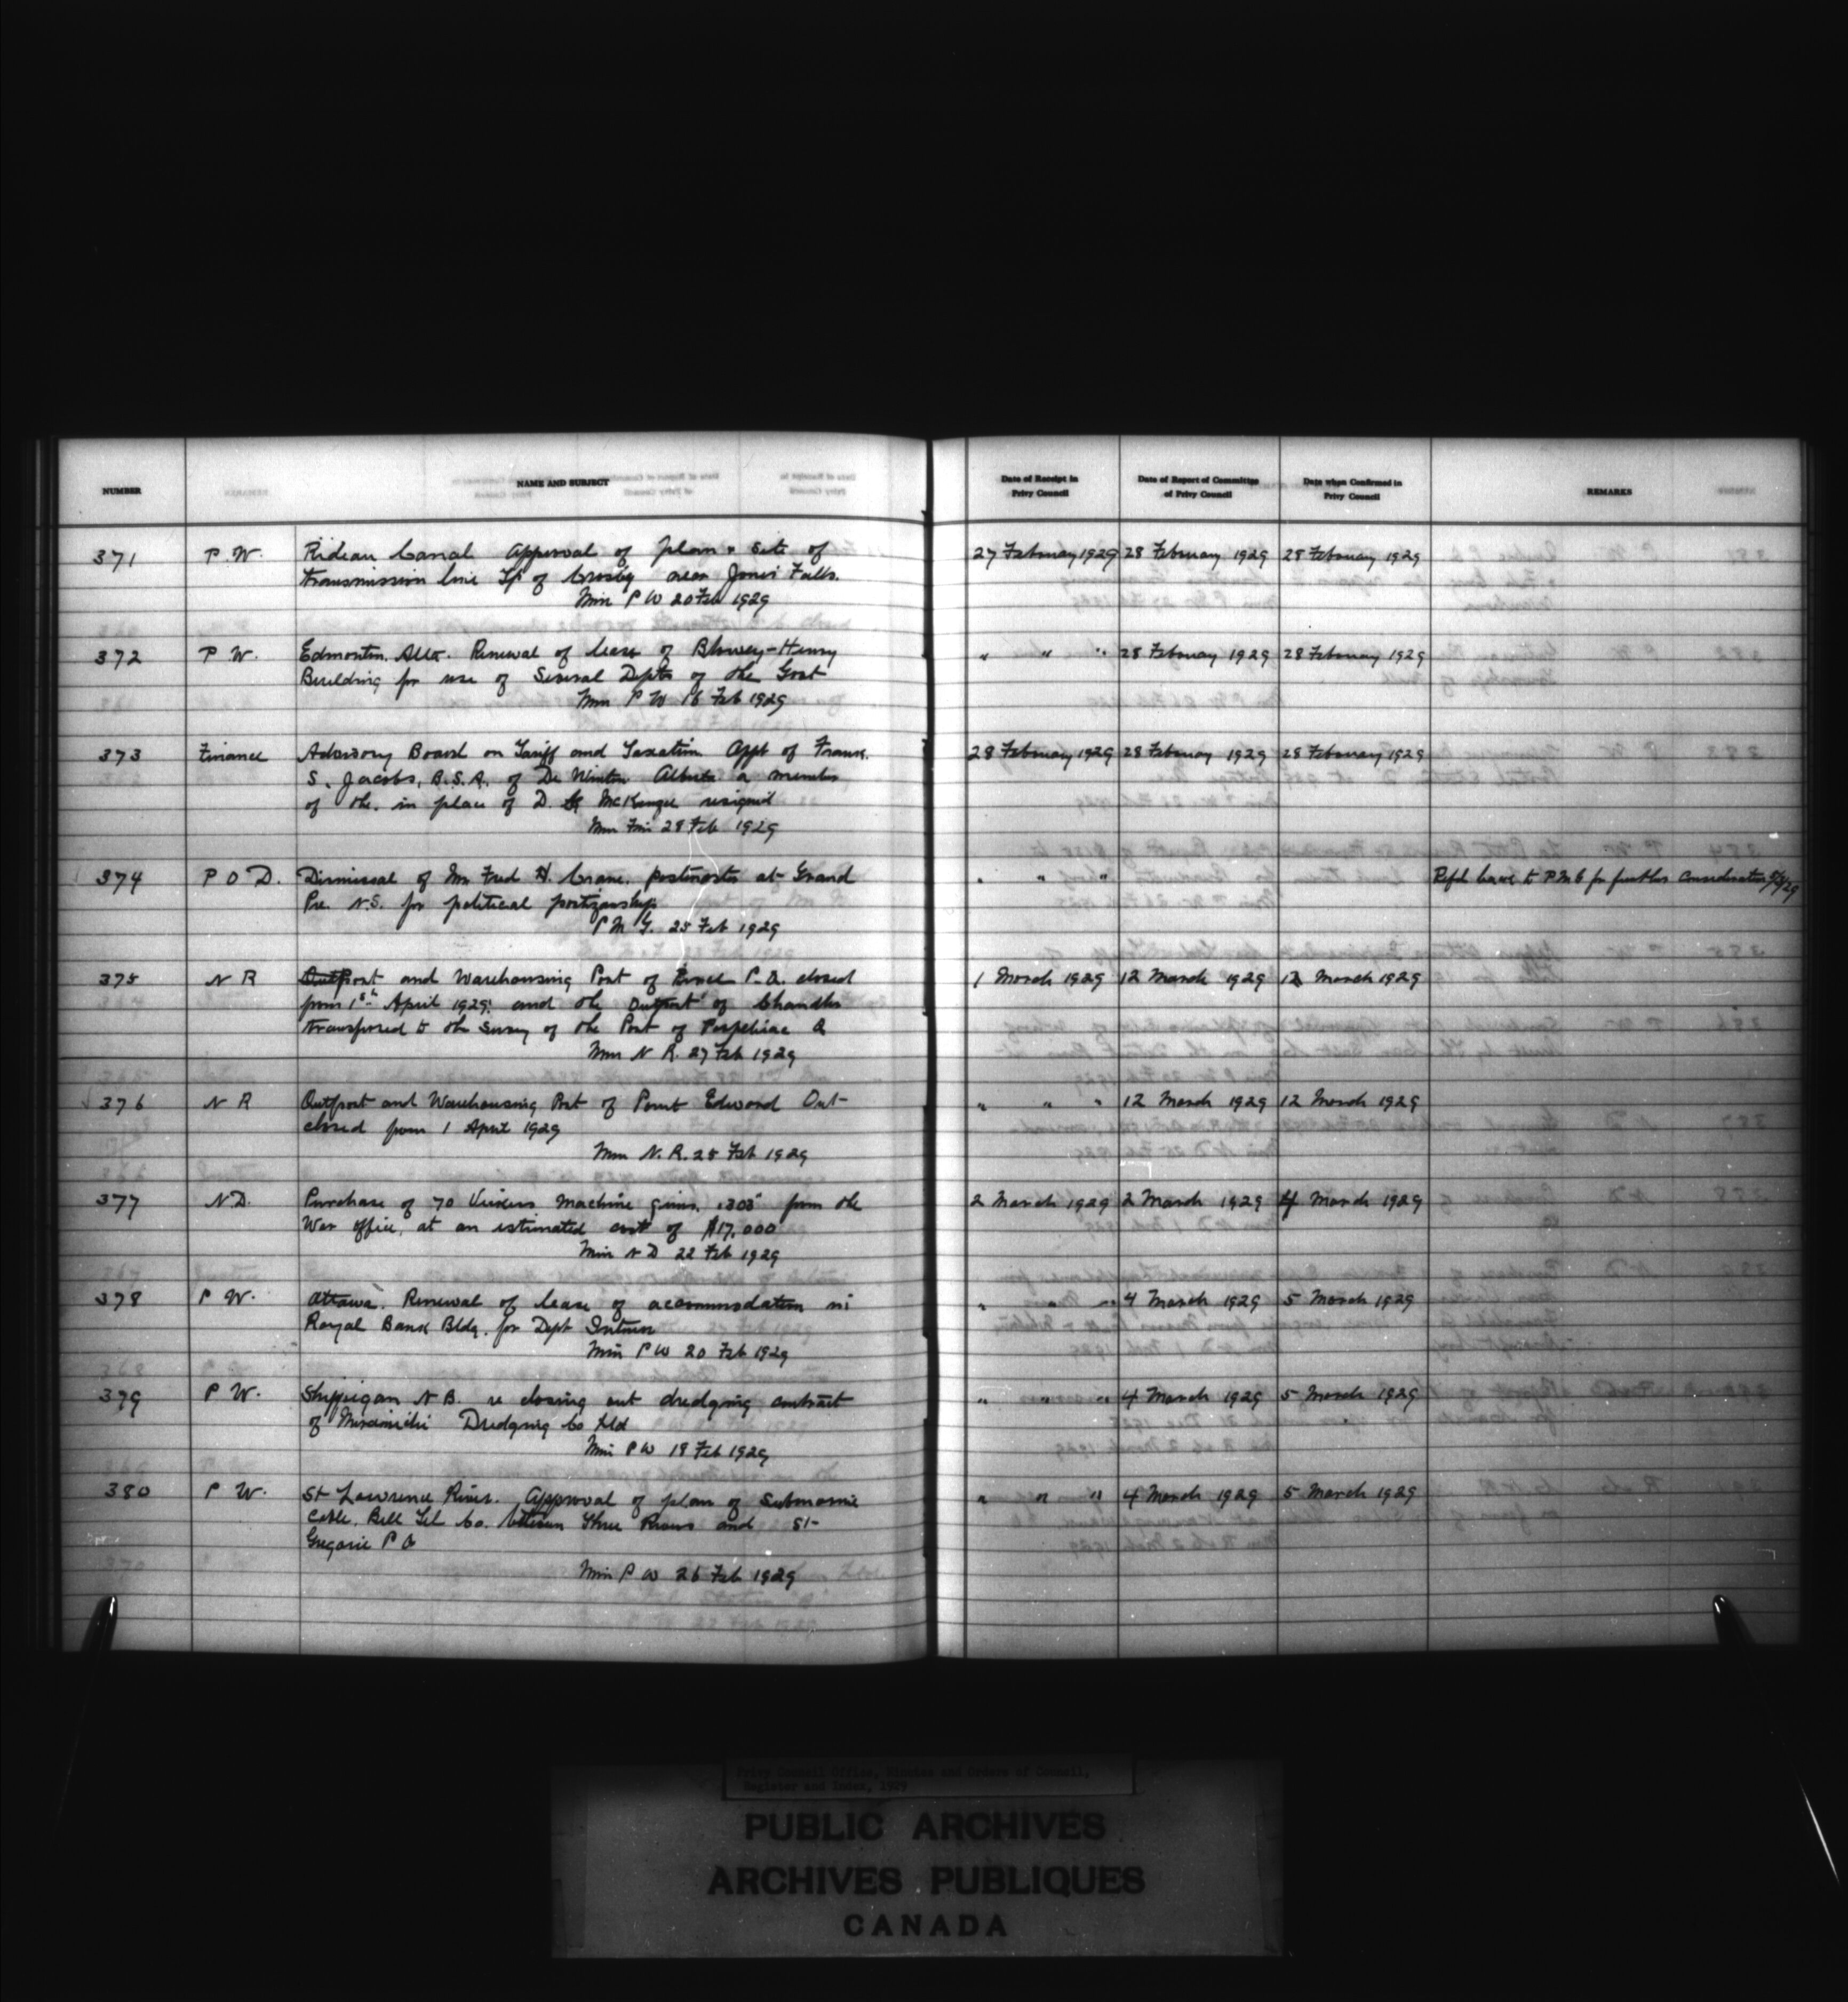 NUMBER
NAME AND SUBJECT
Date of Receipt in Privy Council
Date of Report of Committee of Privy Council
Date when Confirmed in Privy Council
REMARKS
371 P.W. Rideau Canal Approval of plan & site of 27 February 1929 28 February 1929 28 February 1929
transmission line Tp of Crosby near Jones Falls.
Min P W 20 Feb 1929
372 P W. Edmonton. Alta. Renewal of lease of Blowey-Henry " " " 28 February 1929 28 February 1929
Building for use of Several Depts of the Govt
Min P W 16 Feb 1929
373 Finance Advisory Board on Tariff and Taxation Appt of Frank 28 February 1929 28 February 1929 28 February 1929
S. Jacobs, B.S.A. of De Winton Alberta a member
of the. in place of D. McKenzie resigned
Min Fin 28 Feb 1929
374 P O D. Dismissal of Mr Fred H. Crane. postmaster at Grand " " " Refd back to P.M.G for further consideration
Pre. N.S. for political partizanship
P M G. 25 Feb 1929
375 N R Outport and Warehousing Port of P.Q. closed 1 March 1929 12 March 1929 12 March 1929
from 1st April 1929: and the Outport of Chandler
transferred to the Survey of the Port of Paspebiac Q
Min N R. 27 Feb 1929
376 N R Outport and Warehousing Port of Point Edward Ont- " " " 12 March 1929 12 March 1929
closed from 1 April 1929
Min N.R. 25 Feb 1929
377 N.D. Purchase of 70 Vickers machine guns. .303" from the 2 March 1929 2 March 1929 4 March 1929
War office, at an estimated cost of $17,000
Min N D 22 Feb 1929
378 P W. Ottawa. Renewal of lease of accommodation in " " " 4 March 1929 5 March 1929
Royal Bank Bldg. for Dept Interior
Min P W 20 Feb 1929
379 P W. Shippigan N B. re closing out dredging contract " " " 4 March 1929 5 March 1929
of Miramichi Dredging Co Ltd
Min P W 19 Feb 1929
380 P W. St Lawrence River. Approval of plan of Submarine " " " 4 March 1929 5 March 1929
Cable. Bell Tel Co. between Three Rivers and St-
Gregoire P Q
Min P W 26 Feb 1929
Privy Council Office, Minutes and Orders of Council,
Register and Index, 1929
PUBLIC ARCHIVES
ARCHIVES PUBLIQUES
CANADA